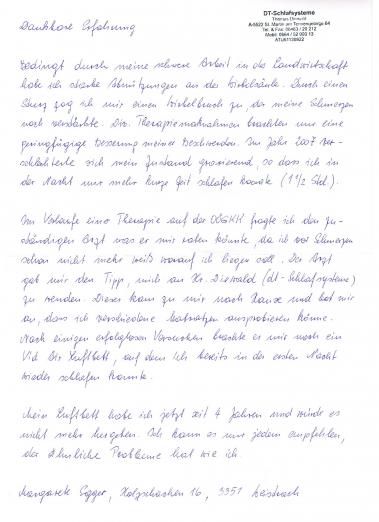 Dankbare Erfahrung
DT-Schlafsysteme
Thomas Dirnwald
A-5522 St. Martin am Tennengebirge 64
Tel. & Fax: 06463 / 20 212
Mobil: 0664 / 52 080 13
ATU61120922
Bedingt durch meine schwere Arbeit in der Landwirtschaft
habe ich starke Abnützungen an der Wirbelsäule. Durch einen
Sturz zog ich mir einen Wirbelbruch zu, der meine Schmerzen
noch verstärkte. Div. Therapiemaßnahmen brachten nur eine
geringfügige Besserung meiner Beschwerden. Im Jahr 2007 ver-
schlechterte sich mein Zustand gravierend, so dass ich in
der Nacht nur mehr kurze Zeit schlafen konnte (1 1/2 Std.).
Im Verlaufe einer Therapie auf der OÖGKK fragte ich den zu-
ständigen Arzt was er mir raten könnte, da ich vor Schmerzen
schon nicht mehr weiß worauf ich liegen soll. Der Arzt
gab mir den Tipp, mich an Hr. Dirnwald (dt-Schlafsysteme)
zu wenden. Dieser kam zu mir nach Hause und bot mir
an, dass ich verschiedene Matratzen ausprobieren könne.
Nach einigen erfolglosen Versuchen brachte er mir noch ein
Luftbett, auf dem ich bereits in der ersten Nacht
wieder schlafen konnte.
Mein Luftbett habe ich jetzt seit 4 Jahren und würde es
nicht mehr hergeben. Ich kann es nur jedem empfehlen,
der ähnliche Probleme hat wie ich.
Margarete Egger, Holzschachen 16, 3351 Weistrach